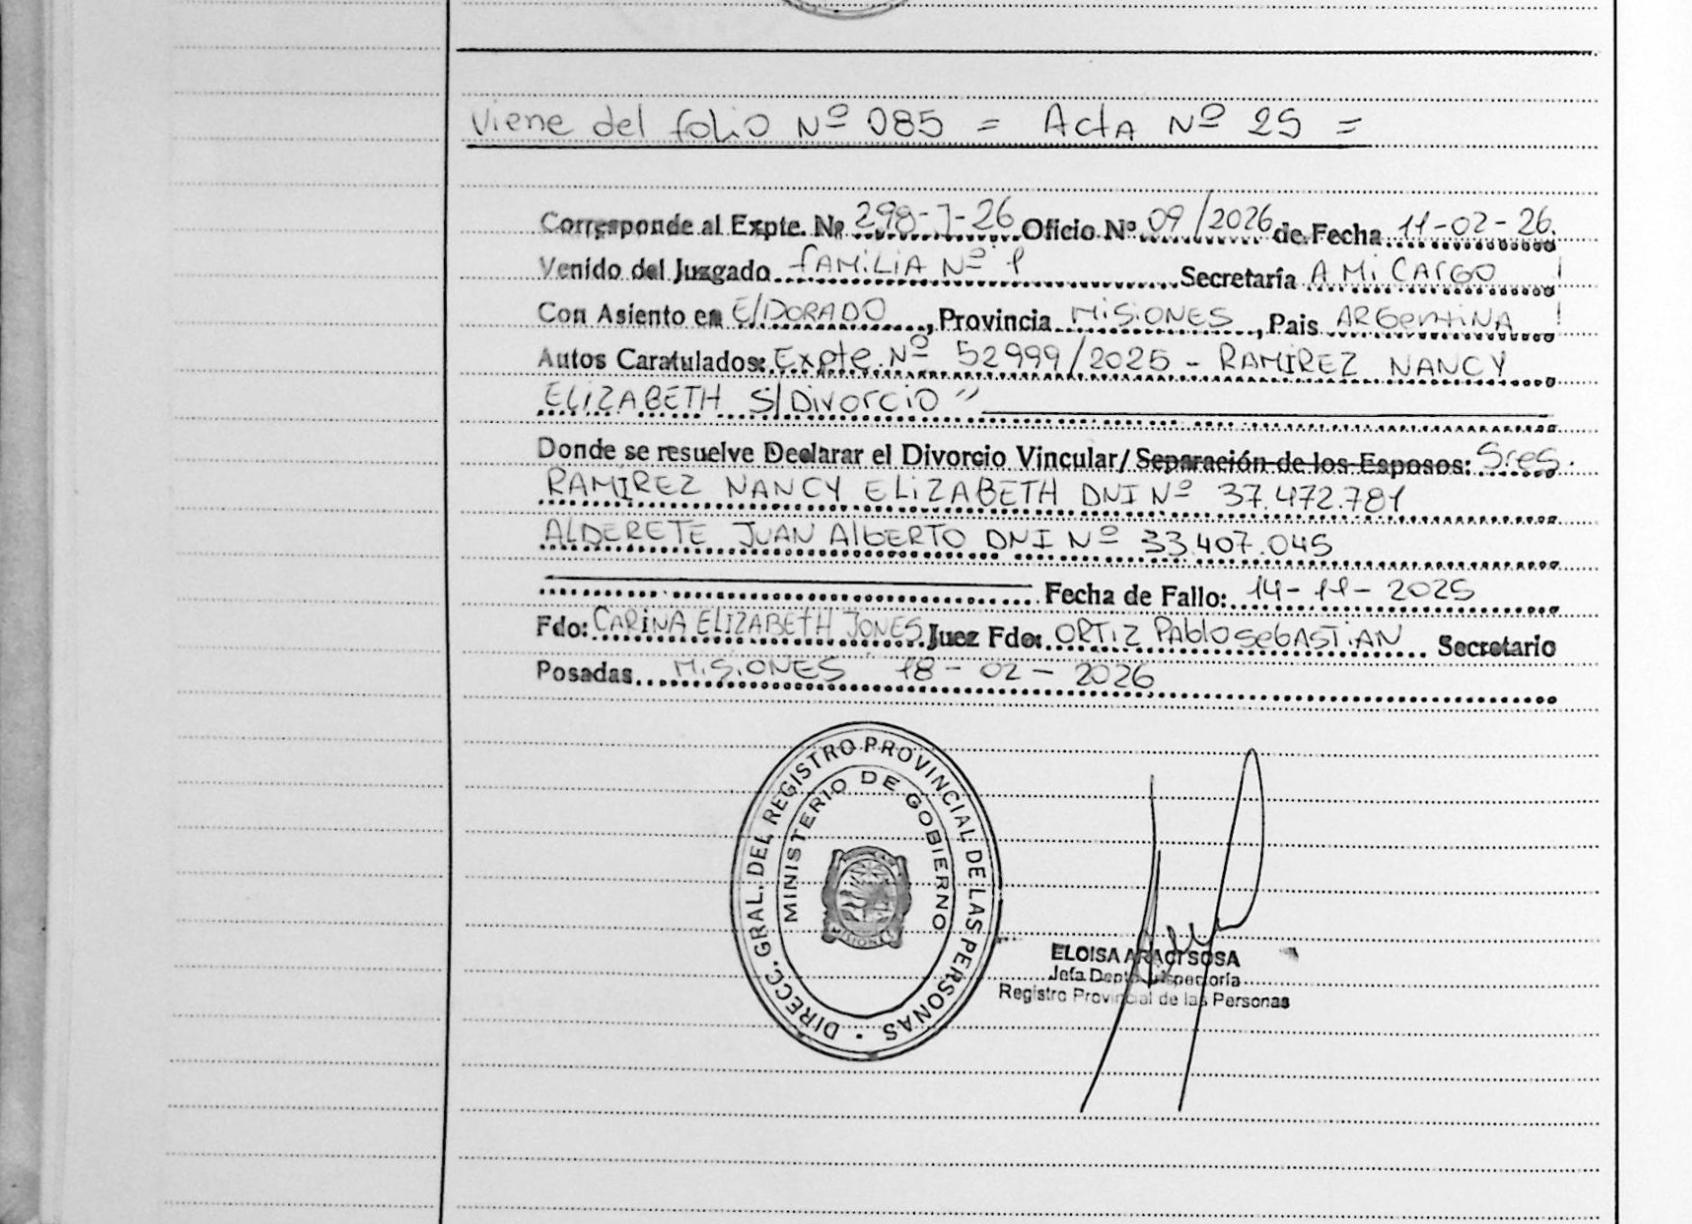 Viene del folio Nº 085 = Acta Nº 25 =
Corresponde al Expte. Nº 298-J-26 Oficio Nº 09/2026 de Fecha 11-02-26.
Venido del Juzgado FAMILIA Nº 1 Secretaría A Mi CARGO
Con Asiento en ElDORADO, Provincia MISIONES, Pais ARGentiNA
Autos Caratulados: Expte. Nº 52999/2025 - RAMIREZ NANCY
ELIZABETH S/Divorcio "
Donde se resuelve Declarar el Divorcio Vincular/ Separación de los Esposos: Sres.
RAMIREZ NANCY ELIZABETH DNI Nº 37.472.781
ALDERETE JUAN AlbERTO DNI Nº 33.407.045
Fecha de Fallo: 14-11-2025
Fdo: CARINA ELIZABETH JONES Juez Fdo: ORTIZ PAblo SebASTIAN Secretario
Posadas MISIONES 18-02-2026
DIRECC. GRAL. DEL REGISTRO PROVINCIAL DE LAS PERSONAS
MINISTERIO DE GOBIERNO
MISIONES
ELOISA ARACI SOSA
Jefa Depto. Inspectoría
Registro Provincial de las Personas